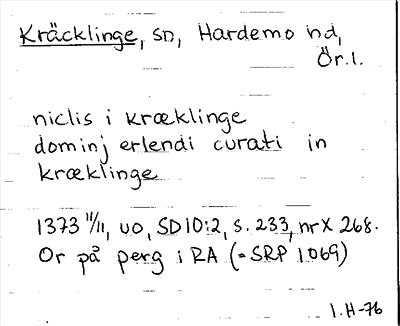 Kräcklinge, sn, Hardemo hd,
Ör.l.
niclis i kræklinge
dominj erlendi curati in
kræklinge
1373 11/11, uo, SD10:2, s. 233, nr X 268.
Or på perg i RA (=SRP 1069)
I.H-76